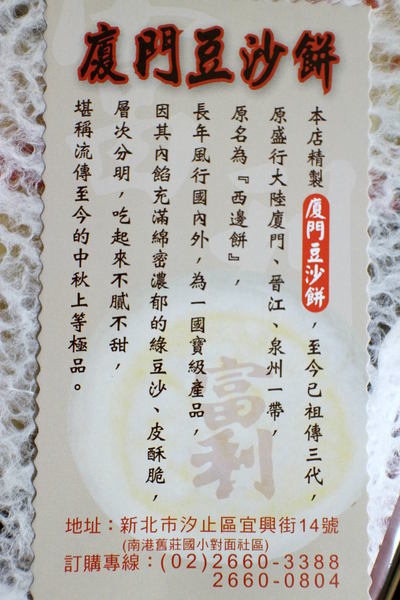 廈門豆沙餅
本店精製廈門豆沙餅，至今已祖傳三代，
原盛行大陸廈門、晉江、泉州一帶，
原名為『西邊餅』，
長年風行國內外，為一國寶級產品，
因其內餡充滿綿密濃郁的綠豆沙、皮酥脆，
層次分明，吃起來不膩不甜，
堪稱流傳至今的中秋上等極品。
富利
地址：新北市汐止區宜興街14號
(南港舊莊國小對面社區)
訂購專線：(02)2660-3388
2660-0804